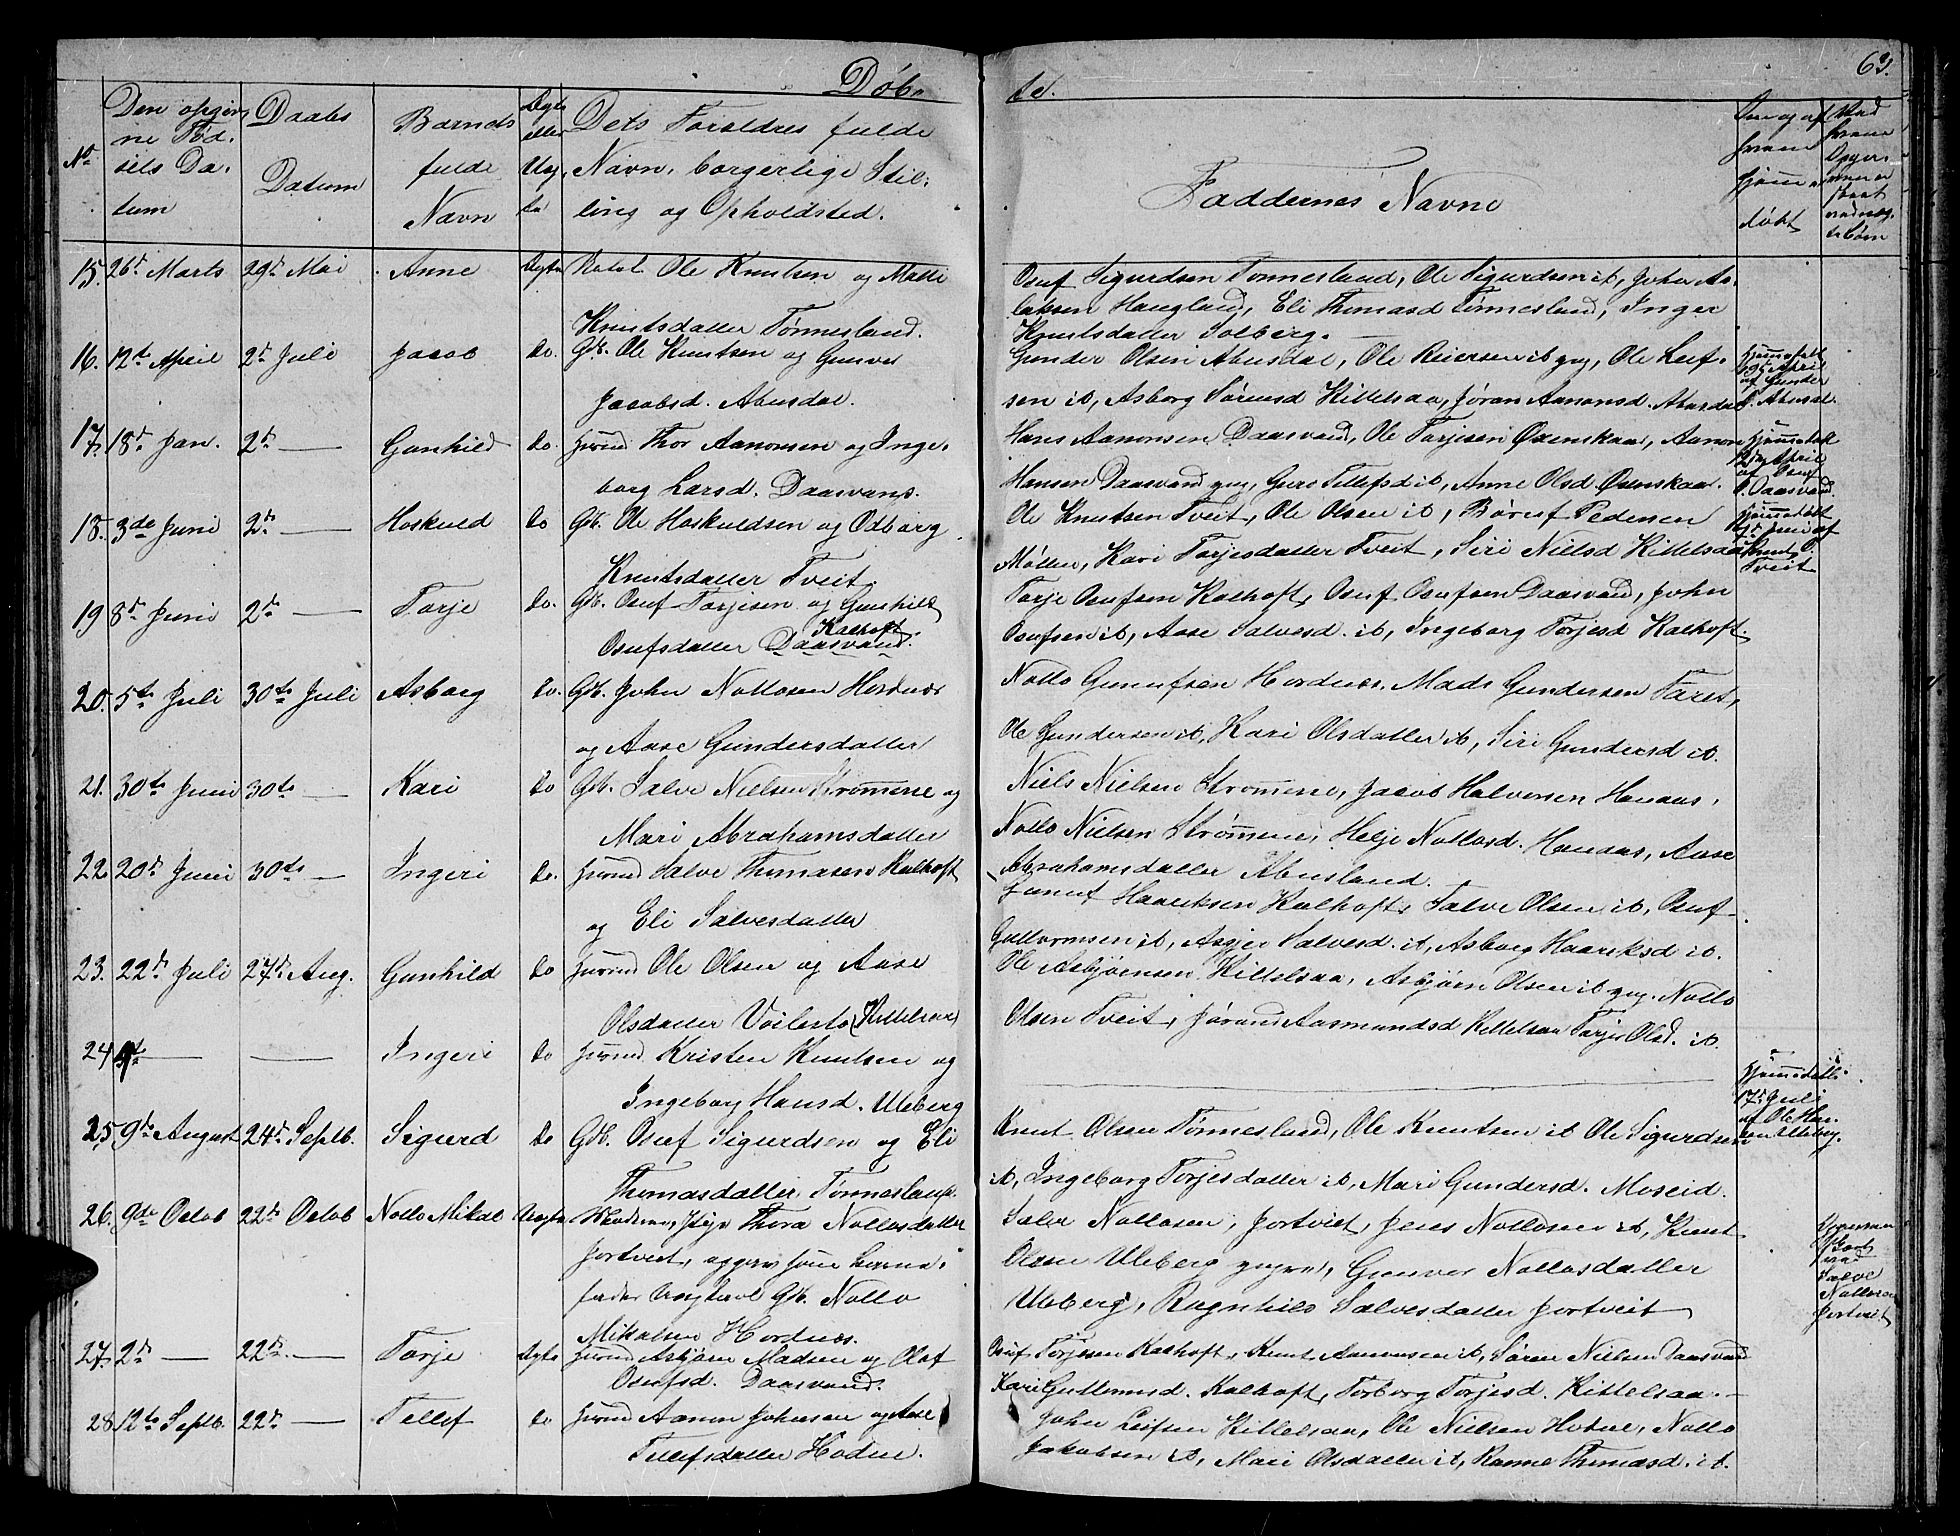 Døb-
te.
63.
No
Den opgiv-
ne Fød-
sels Da-
tum
Daabs
Datum
Barnets
fulde
Navn
Ægte
eller
Uæg-
te
Dets Foraldres fulde
Navn, borgerlige Stil-
ling og Opholdsted.
Faddernes Navne
Om og af
hvem
hjemme
døbt
15. 26de Marts 29de Mai Anne Ægte Ole Knutsen og Malli
Knutsdatter Tønnesland.
Osuf Sigurdsen Tønnesland, Ole Sigurdsen it, John As-
laksen Haugland, Eli Thomasd Tønnesland, Inger
Knutsdatter Solberg.
16. 12te April 2de Juli Jacob do. Gbr. Ole Knutsen og Gunvor
Jacobsd. Abusdal.
Gunder Olsen Abusdal, Ole Reiersen it gug, Ole Leif-
sen it, Asborg Sørensd Kittelsaa, Jøran Aanonsd. Abusdal
hjemmedøbt
19de April
af Gunder
O. Abusdal
17. 18de Jan. 2de — Gunhild do. Thor Aanonsen og Inge-
borg Larsd. Daasvand.
Hans Aanonsen Daasvand, Ole Torjesen Øxenskaar, Aanon
Hansen Daasvand gug, Guro Tellefsd it, Anne Olsd Øxenskaar.
hjemmedøbt
April
af Osuf
O. Daasvand
18. 3de Juni 2de — Hoskuld do Gbr. Ole Hoskuldsen og Odborg
Knutsdatter Tveit.
Ole Knutsen Tveit, Ole Olsen it, Børuf Pedersen
Møllen, Kari Torjesdatter Tveit, Siri Nielsd Kittelsaa
hjemmedøbt
Juni af
Knut O.
Tveit
19 8de Juni 2de — Torje do. Gbr. Osuf Torjesen og Gunhild
Kalhoft
Osufsdatter Daasvand.
Torje Osufsen Kalhoft, Osuf Osufsen Daasvand, John
Osufsen it, Aase Salvesd. it, Ingeborg Torjesd Kalhoft.
20. 5te Juli 30te Juli Asborg do. Gbr. John Nottosen Hordnæs
og Aase Gundersdatter
Notto Gunufsen Hordnæs. Mads Gundersen Faret,
Ole Gundersen it, Kari Olsdatter it, Siri Gundersd it.
21. 30te Juni 30te — Kari do Gbr. Salve Nielsen Strømene og
Mari Abrahamsdatter
Niels Nielsen Strømene, Jacob Halvorsen Hanaas,
Notto Nielsen Strømene, Helje Nottosd. Hanaas, Aase
Abrahamsdatter Abusland.
22. 20de Juni 30te — Ingeri do. Salve Thomasen Kalhoft
og Eli Salvesdatter
Gunuf Haarsksen Kalhoft, Salve Olsen it, Osuf
Guttormsen it, Asgjer Salvesd. it, Asborg Haarsksd it.
23. 22de Juli 27de Aug. Gunhild do Ole Olsen og Aase
Olsdatter Voilesto (Kittelsaa)
Ole Asbjørnsen Kittelsaa, Asbjørn Olsen it gug. Notto
Olsen Tveit, Jørand Aasmundsd Kittelsaa Torjer Olsd. it.
24 — — Ingeri do Kristen Knutsen og
Ingeborg Hansd. Uleberg
hjemmedøbt
17de Juli
af Ole Han-
sen Uleberg.
25. 9de August 24de Septb. Sigurd do Gbr. Osuf Sigurdsen og Eli
Thomasdatter Tønnesland.
Knut Olsen Tønnesland, Ole Knutsen it Ole Sigurdsen
it, Ingeborg Torjesdatter it, Mari Gundersd. Moseid.
26. 9de Octob 22de Octob Notto Mikal Uægte Moderen, Pige Thora Nottosdatter
Jortveit, opgiv som Barne-
fader Ungkarl Gbr. Notto
Mikalsen Hordnæs.
Salve Nottosen, Jortveit, Jens Nottosen it, Knut
Olsen Uleberg, Gunvor Nottosdatter
Uleberg, Ragnhild Salvesdatter Jortveit
Salve
Nottosen
Jortveit
27. 2de — 22de — Torje Ægte Asbjørn Madsen og Olaf
Osufsd. Daasvand.
Osuf Torjesen Kalhoft, Knut Aanonsen it, Søren Nielsen Daasvand
Kari Guttormsd. Kalhoft, Torborg Torjesd. Kittelsaa.
28. 12te Septb. 22de — Tellef do Aanon Johnsen og Aase
Tellefsdatter Hodne.
John Leifsen Kittelsaa, Ole Nielsen Hodne, Notto
Jakobsen it, Mari Olsdatter it, Ranne Thomasd. it.